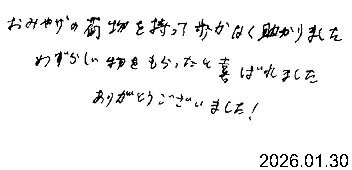 おみやげの荷物を持って歩かなく助かりました
めずらしい物をもらったと喜ばれました
ありがとうございました！
2026.01.30